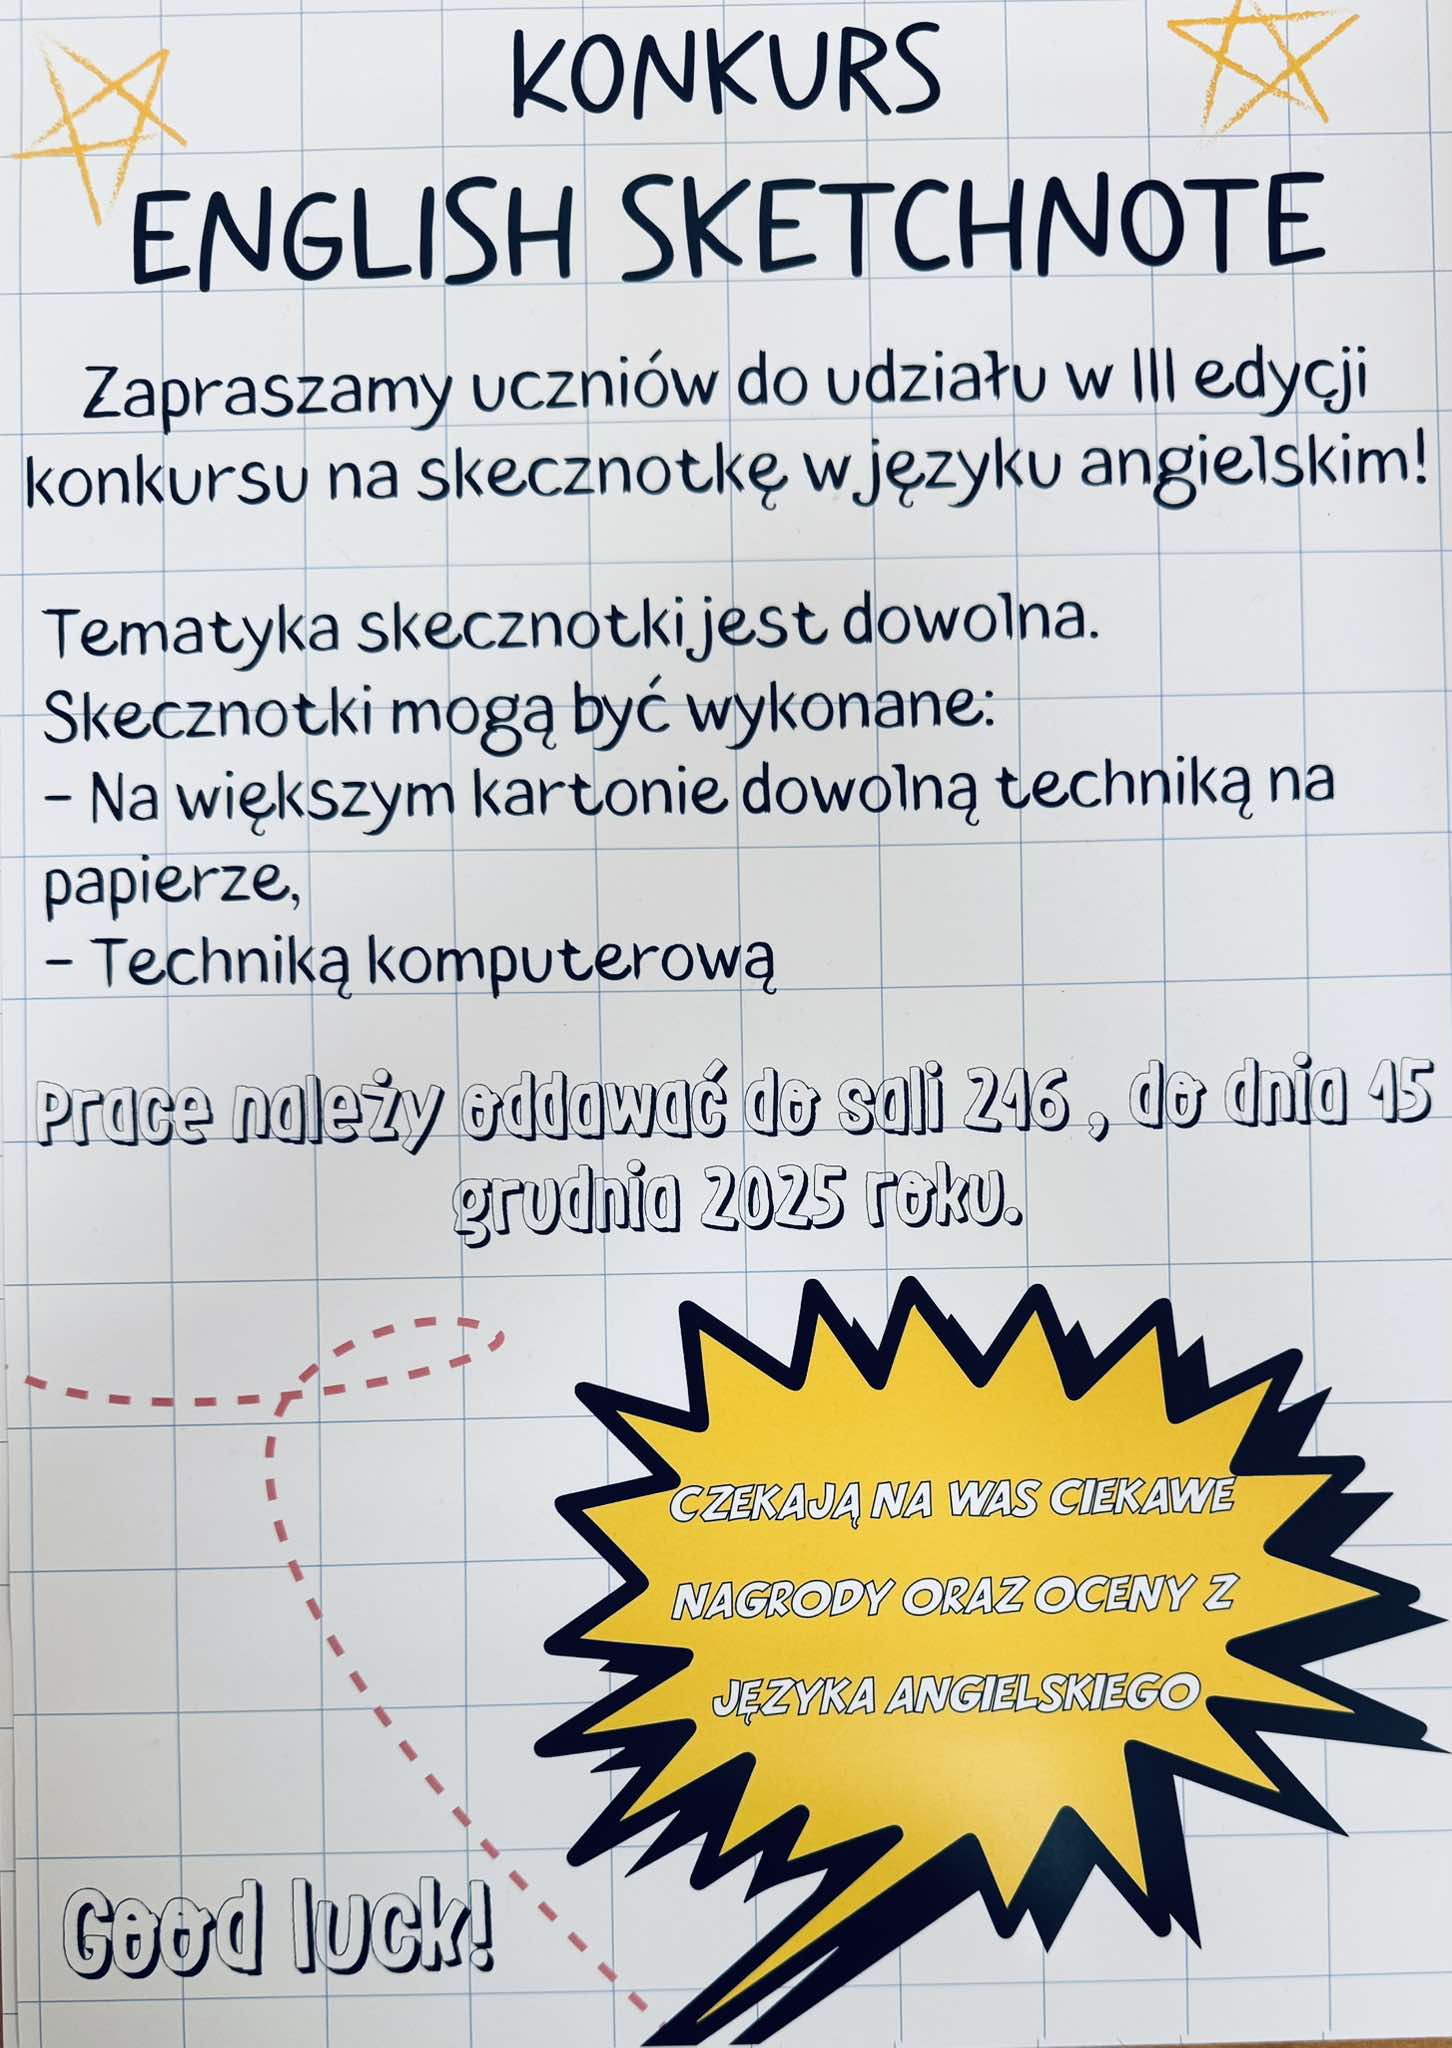 KONKURS
ENGLISH SKETCHNOTE
Zapraszamy uczniów do udziału w III edycji
konkursu na skecznotkę w języku angielskim!
Tematyka skecznotki jest dowolna.
Skecznotki mogą być wykonane:
– Na większym kartonie dowolną techniką na
papierze,
– Techniką komputerową
Prace należy oddawać do sali 216 , do dnia 15
grudnia 2025 roku.
CZEKAJĄ NA WAS CIEKAWE
NAGRODY ORAZ OCENY Z
JĘZYKA ANGIELSKIEGO
Good luck!